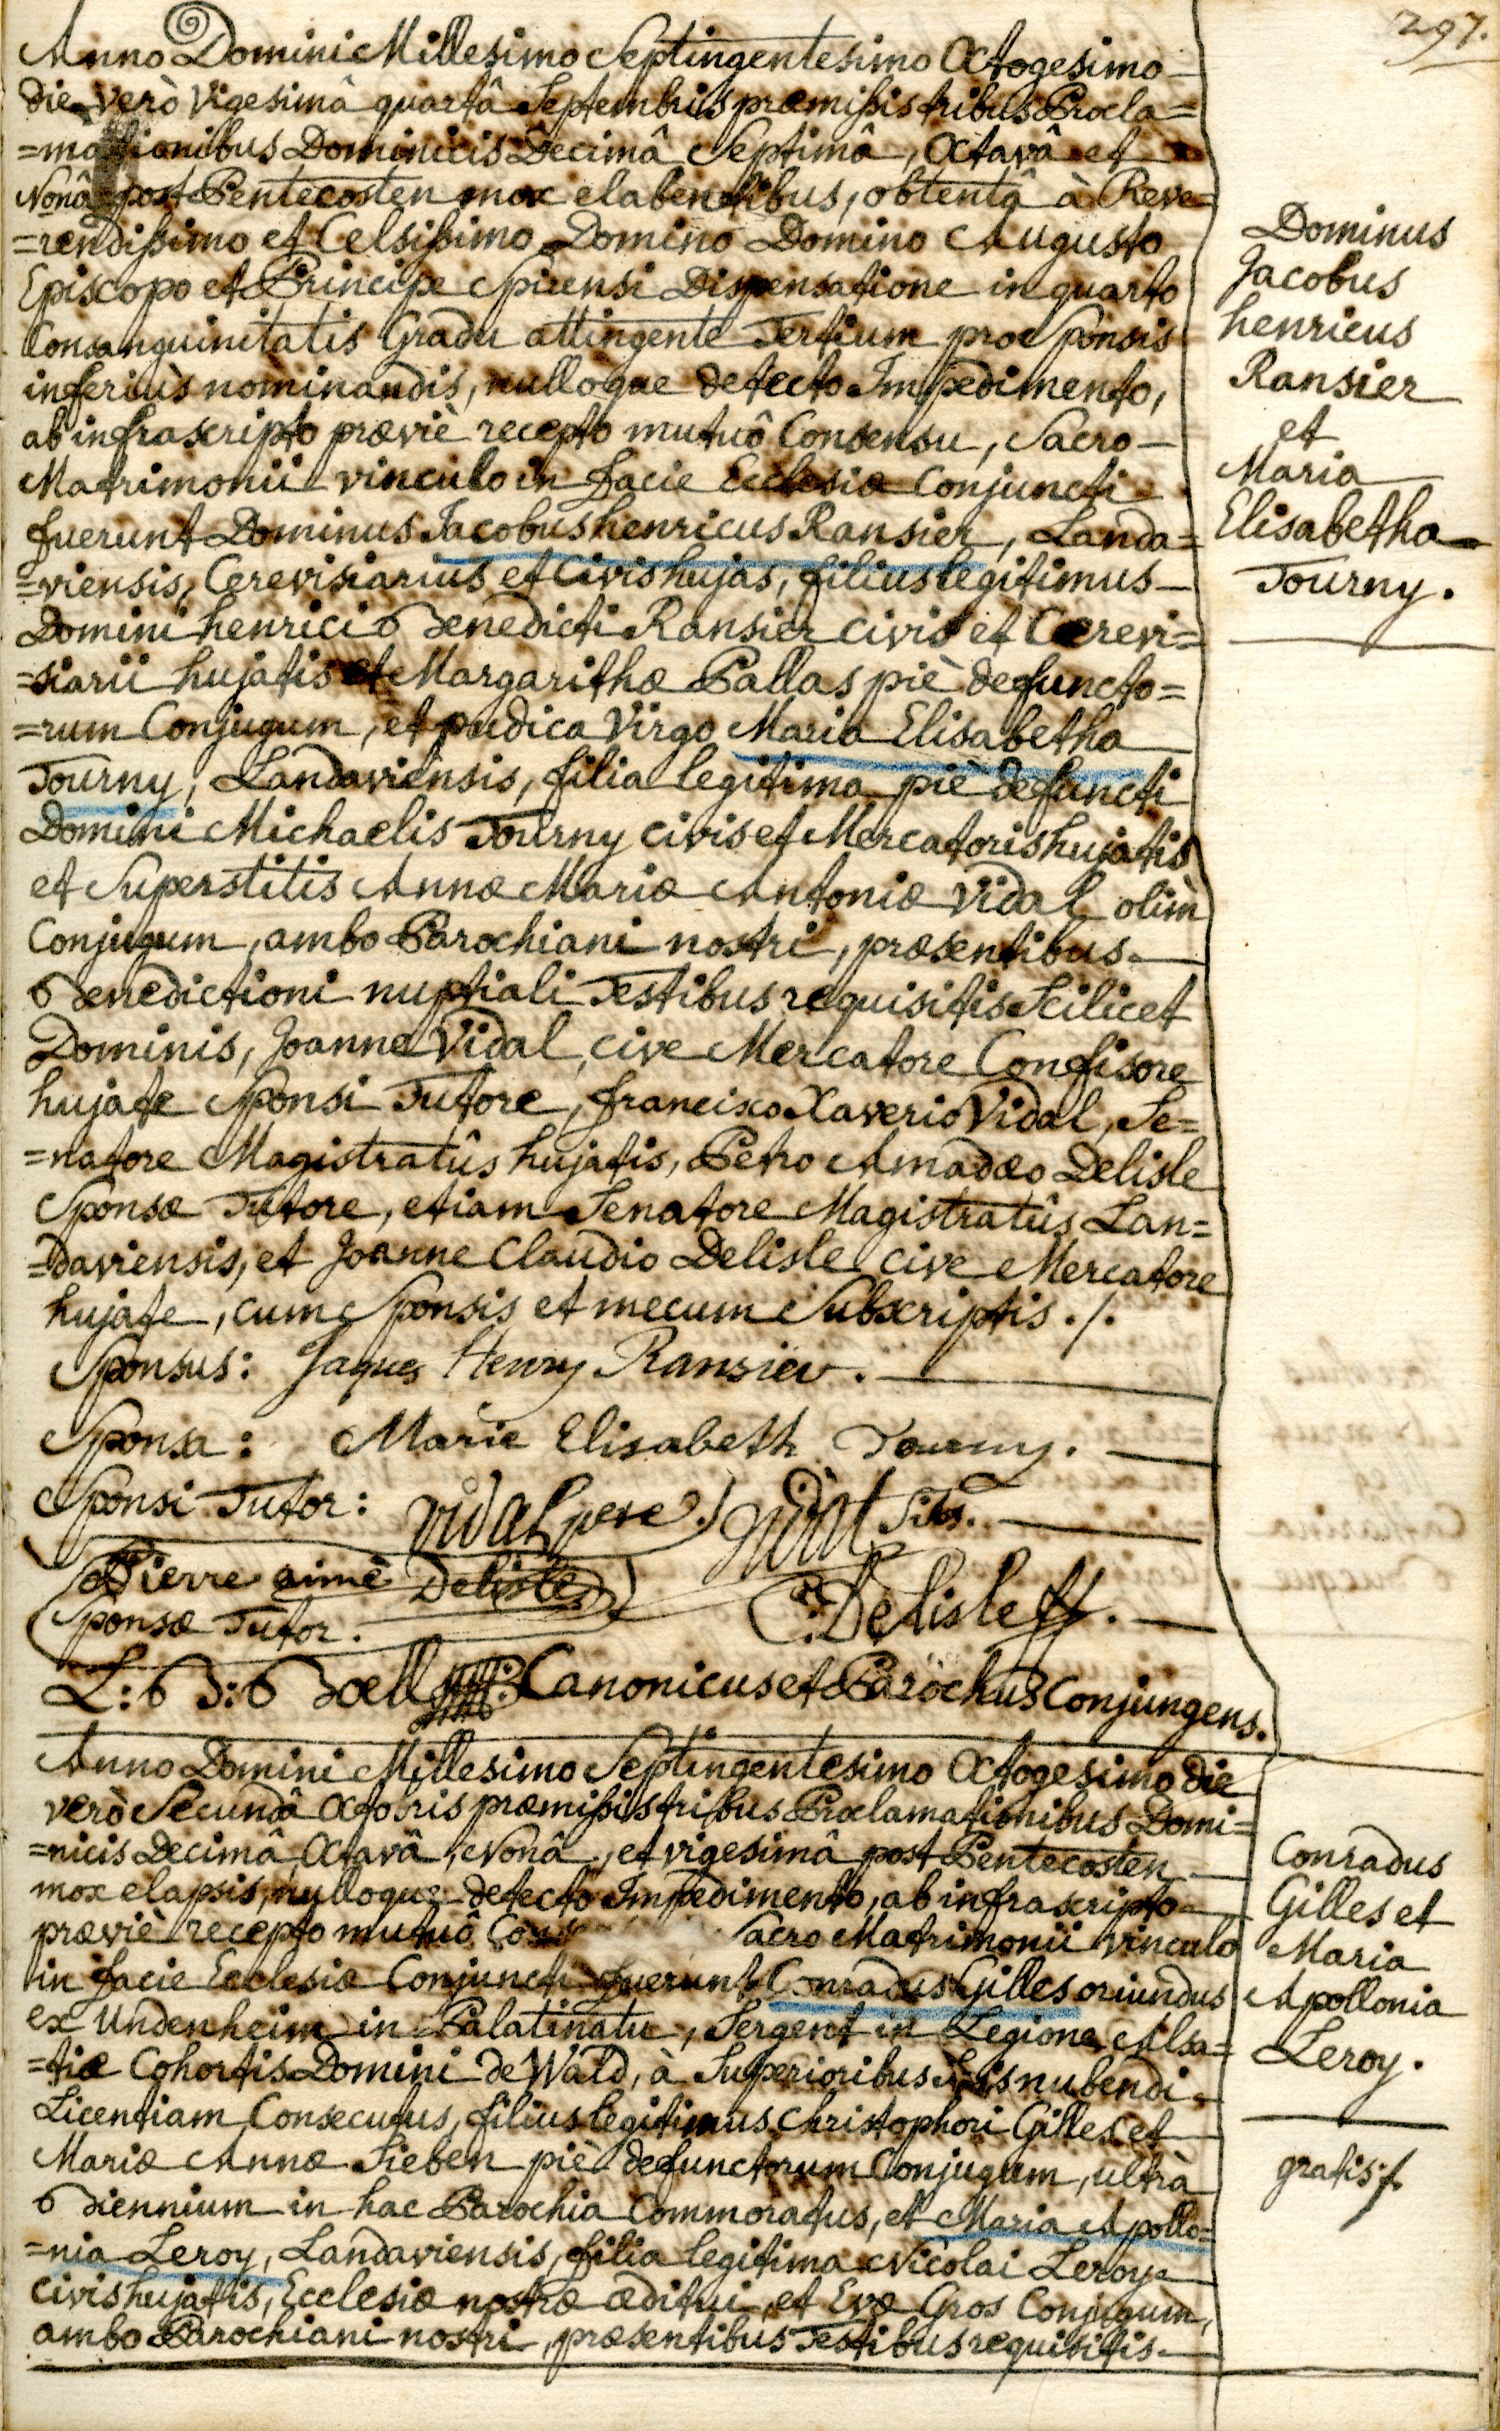 297.
Anno Domini Millesimo Septingentesimo Octogesimo
die verò vigesimâ quartâ Septembris præmissis tribus Procla=
=mationibus Dominicis Decimâ Septimâ, Octavâ et
Nonâ post Pentecosten mox elabentibus, obtentâ à Reve=
=rendissimo et Celsissimo Domino Domino Augusto
Episcopo et Principe Spirensi Dispensatione in quarto
Consanguinitatis Gradu attingente Tertium pro Sponsis
inferiùs nominandis, nulloque detecto Impedimento,
ab infrascripto præviè recepto mutuô Consensu, Sacro
Matrimonii vinculo in facie Ecclesiæ Conjuncti
fuerunt Dominus Jacobus henricus Ransier, Landa=
=viensis, Cerevisiarius et Civis hujas, filius legitimus
Domini henrici Benedicti Ransier civis et Cerevi=
=siarii hujatis et Margarithæ Pallas piè defuncto=
=rum Conjugum, et pudica Virgo Maria Elisabetha
Tourny, Landaviensis, filia legitima piè defuncti
Domini Michaelis Tourny civis et Mercatoris hujatis
et Superstitis Annæ Mariæ Antoniæ Vidal olim
Conjugum, ambo Parochiani nostri, præsentibus
Benedictioni nuptiali Testibus requisitis Scilicet
Dominis, Joanne Vidal, cive Mercatore Confisore
hujate Sponsi Tutore, francisco Xaverio Vidal, Se=
=natore Magistratûs hujatis, Petro Amadæo Delisle
Sponsæ Tutore, etiam Senatore Magistratûs Lan=
=daviensis, et Joanne Claudio Delisle cive Mercatore
hujate, cum Sponsis et mecum Subscriptis ./.
Sponsus: Jaques Henry Ransier.
Sponsa: Marie Elisabeth Tourny.
Sponsi Tutor: vidal pere. vidal fils.
Pierre aimè Delisle
Sponsæ Tutor.
C: Delisle
L: B: Boell Canonicus et Parochus Conjungens.
Dominus
Jacobus
henricus
Ransier
et
Maria
Elisabetha
Tourny.
Anno Domini Millesimo Septingentesimo Octogesimo die
verò Secundâ Octobris præmissis tribus Proclamationibus Domi=
=nicis Decimâ Octavâ, Nonâ, et vigesimâ post Pentecosten
mox elapsis, nulloque detecto Impedimento, ab infrascripto
præviè recepto mutuô Cons Sacro Matrimonii vinculo
in facie Ecclesiæ Conjuncti fuerunt Conradus Gilles oriundus
ex Undenheim in Palatinatu, Sergent in Legione Alsa=
=tiæ Cohortis Domini de Wald, à Superioribus Suis nubendi
Licentiam Consecutus, filius legitimus Christophori Gilles et
Mariæ Annæ Sieben piè defunctorum Conjugum, ultrà
Biennium in hac Parochia Commoratus, et Maria Apollo=
=nia Leroy, Landaviensis, filia legitima Nicolai Leroy
civis hujatis, Ecclesiæ nostræ æditui, et Evæ Gros Conjugum,
ambo Parochiani nostri, præsentibus Testibus requisitis
Conradus
Gilles et
Maria
Apollonia
Leroy.
gratis